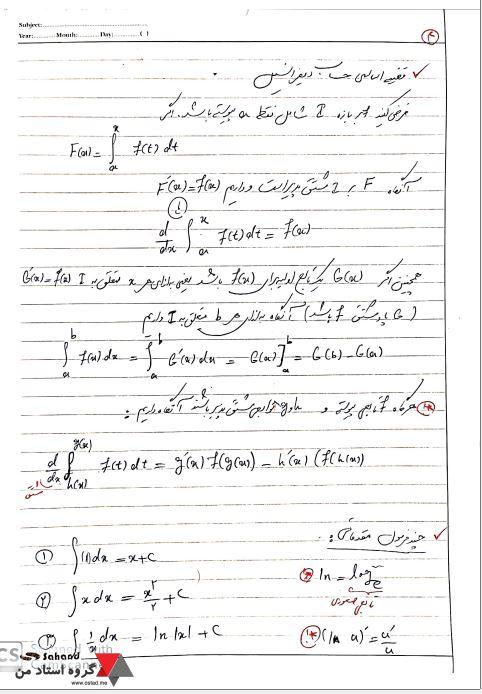 Subject:
Year: Month: Day: ( )
۴
✓ قضیه اساسی حساب دیفرانسیل
فرض کنید f بر بازه I شامل نقطه a پیوسته باشد. اگر
F(x) = ∫_a^x f(t) dt
آنگاه F بر I مشتق پذیر است و داریم F'(x) = f(x)
یا
d/dx ∫_a^x f(t) dt = f(x)
همچنین اگر G(x) یک تابع اولیه برای f(x) باشد یعنی بازای هر x متعلق به I G'(x) = f(x)
(G پاد مشتق f باشد) آنگاه بازای هر b متعلق به I داریم
∫_a^b f(x) dx = ∫_a^b G'(x) dx = G(x)]_a^b = G(b) - G(a)
* هرگاه f تابعی پیوسته و h و g توابعی مشتق پذیر باشند آنگاه داریم :
d/dx ∫_{h(x)}^{g(x)} f(t) dt = g'(x) f(g(x)) - h'(x) (f(h(x))
مشتق
✓ چند فرمول مقدماتی :
① ∫(1) dx = x + C
* ln = log_e
تابع
② ∫ x dx = x^۲/۲ + C
③ ∫ 1/x dx = ln |x| + C
* (ln u)' = u'/u
CS Scanned with
Sahand
گروه استاد من
www.ostad.me